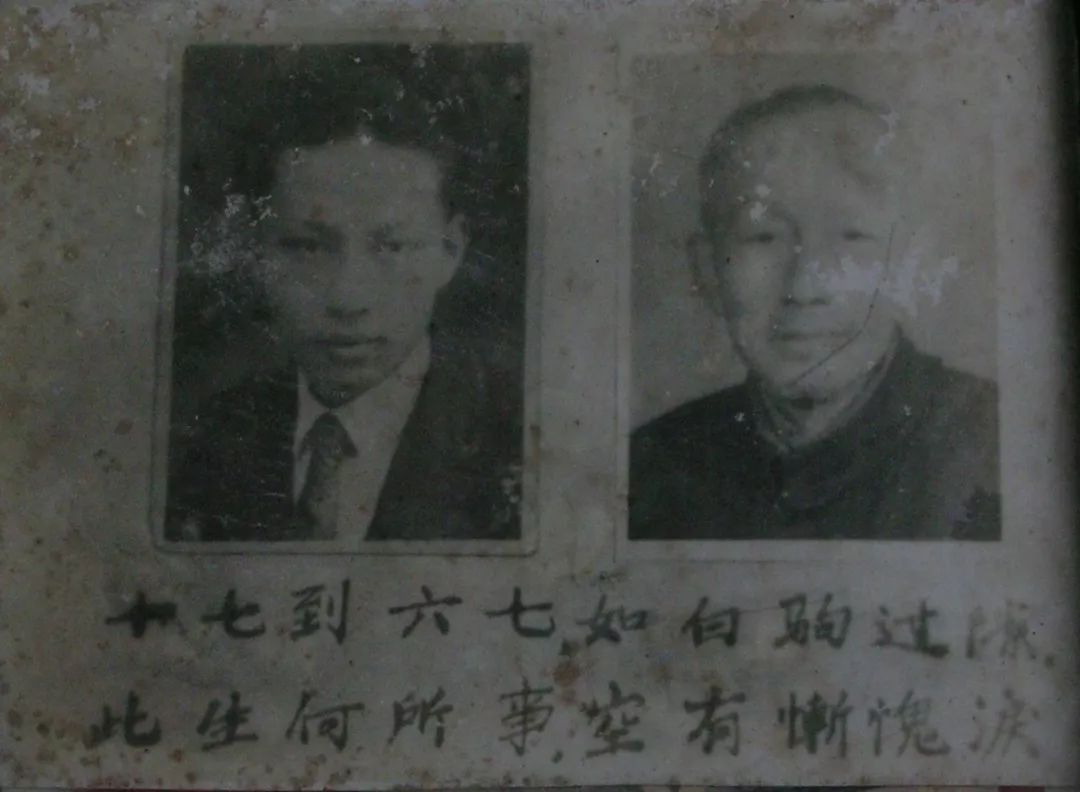 十七到六七,如白驹过隙.
此生何所事,空有惭愧淚